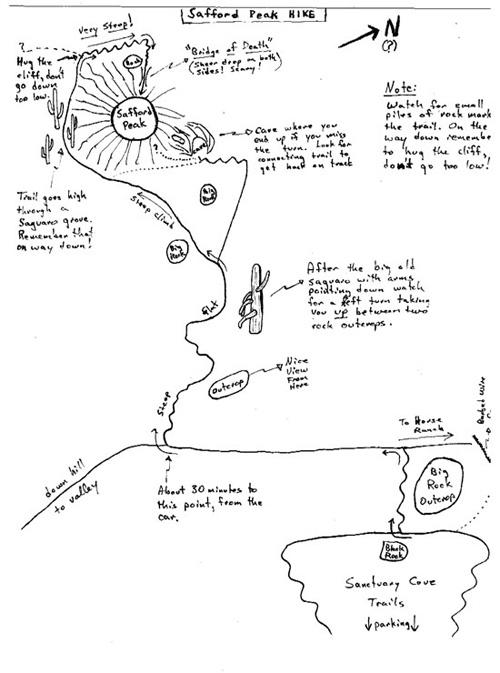 Safford Peak HIKE
N
(?)
Very Steep!
?
Hug the
cliff, don't
go down
too low.
Rock
"Bridge of Death"
(Sheer drop on both
Sides! Scary!)
Note:
Watch for small
piles of rock mark
the trail. On the
way down remembe
to hug the cliff,
don't go too low!
Safford
Peak
?
cave
Cave where you
end up if you miss
the turn. Look for
connecting trail to
get back on track
Trail goes high
through a
Saguaro grove.
Remember that
on way down!
Steep climb
Big
Rock
Big
Rock
After the big old
saguaro with arms
pointing down watch
for a left turn taking
you up between two
rock outcrops.
Flat
Outcrop
Nice
View
From
Here
Steep
To Horse
Ranch
Barbed Wire
down hill
to valley
About 30 minutes to
this point, from the
car.
Big
Rock
Outcrop
Black
Rock
Sanctuary Cove
Trails
parking